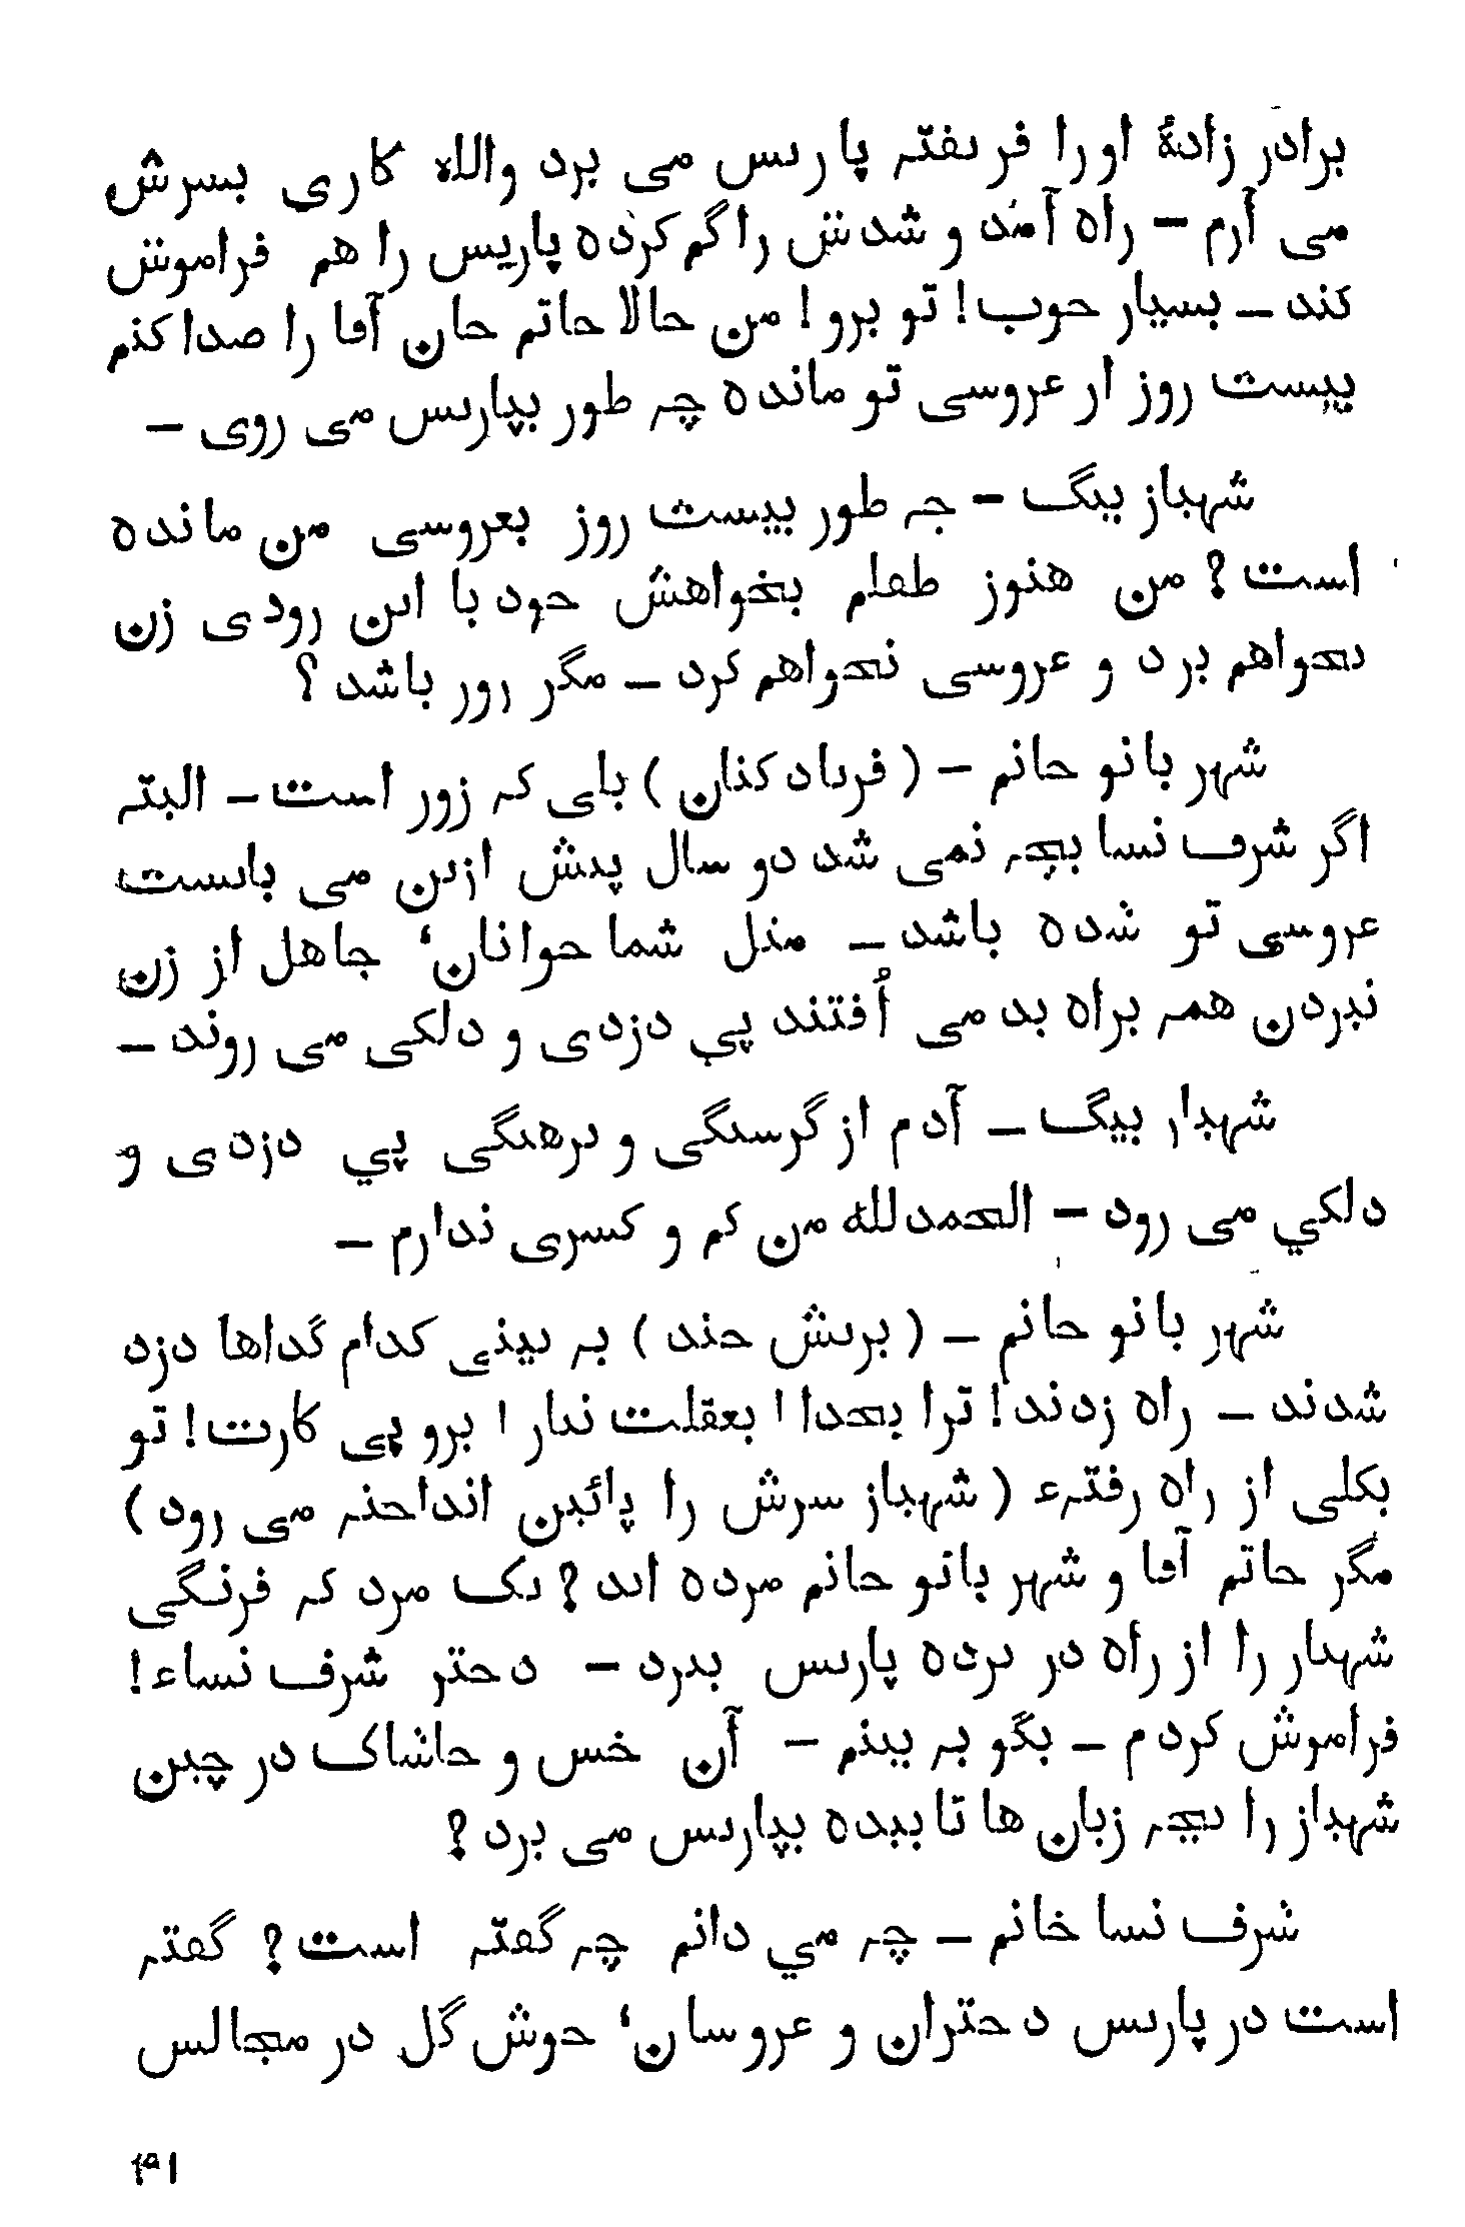 برادر زادۀ اورا فریفتہ پاریس می برد واللہ کاری بسرش
می آرم – راه آمد و شدش را گم کرده پاریس را هم فراموش
کند – بسیار خوب! تو برو! من حالا حاتم خان آقا را صدا کنم
بیست روز از عروسی تو مانده چہ طور بپاریس می روی –
شهباز بیگ – چہ طور بیست روز بعروسی من مانده
است؟ من هنوز طفلم بخواهش خود با این زودی زن
نخواهم برد و عروسی نخواهم کرد – مگر زور باشد؟
شهر بانو خانم – (فریاد کنان) بلی کہ زور است – البتہ
اگر شرف نسا بچہ نمی شد دو سال پیش ازین می بایست
عروسی تو شده باشد – مثل شما جوانان، جاهل از زن
نبردن همہ براه بد می اُفتند پی دزدی و دلکی می روند –
شهباز بیگ – آدم از گرسنگی و برهنگی پی دزدی و
دلکی می رود – الحمدللہ من کم و کسری ندارم –
شهر بانو خانم – (بریش خند) بہ بینی کدام گداها دزد
شدند – راه زدند! ترا بخدا! بعقلت نناز! برو پی کارت! تو
بکلی از راه رفتہء (شهباز سرش را پائین انداختہ می رود)
مگر حاتم آقا و شهر بانو خانم مرده اند؟ یک مرد کہ فرنگی
شهباز را از راه در برده پاریس ببرد – دختر شرف نساء!
فراموش کردم – بگو بہ بینم – آن خس و خاشاک در چین
شهباز را بچہ زبان ها تابیده بپاریس می برد؟
شرف نسا خانم – چہ می دانم چہ گفتہ است؟ گفتہ
است در پاریس دختران و عروسان، خوش گل در مجالس
۴۱